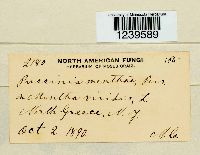 1239589
2180
NORTH AMERICAN FUNGI
Puccinia menthae, Pers
on Mentha viridis, L
North Greece, N.Y.
Oct 2. 1890